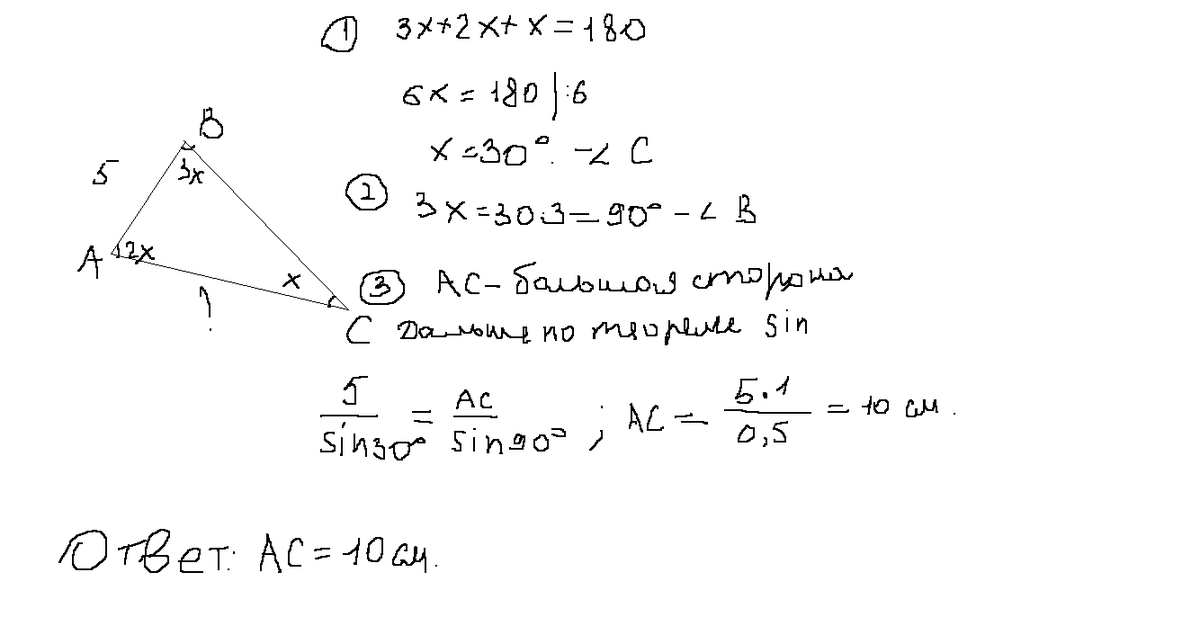 ① 3x+2x+x=180
6x=180 |:6
x=30°. -∠ C
B
5
3x
② 3x=30.3=90° - ∠ B
A
2x
x
?
C
③ AC- большая сторона
Дальше по теореме sin
5/sin30° = AC/sin90° ; AC = 5.1/0,5 = 10 см.
Ответ: AC = 10 см.